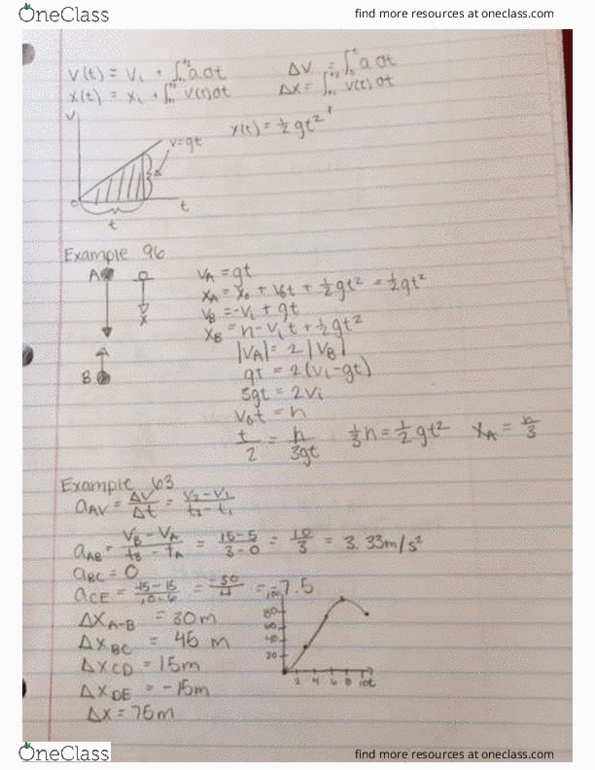 OneClass find more resources at oneclass.com
v(t) = v₁ + ∫ a dt Δv = ∫ a dt
x(t) = x₁ + ∫ v(t) dt Δx = ∫ v(t) dt
v
x(t) = ½gt²
v=gt
t
t
Example 96
A
V_A = gt
x
X_A = x₀ + v₀t + ½gt² = ½gt²
V_B = -v₁ + gt
X_B = h - v₁t + ½gt²
|V_A| = 2|V_B|
B
gt = 2(v₁-gt)
3gt = 2v₁
v₀t = h
t/2 = h/3gt ⅓h = ½gt² X_A = h/3
Example 63
a_AV = Δv/Δt = (v₂-v₁)/(t₂-t₁)
a_AB = (V_B - V_A)/(t_B - t_A) = (15-5)/(3-0) = 10/3 = 3.33m/s²
a_BC = 0
a_CE = (-15-15)/(10-6) = -30/4 = -7.5
100
80
60
40
20
2 4 6 8 10 t
Δx_A-B = 30m
Δx_BC = 45 m
Δx_CD = 15m
Δx_DE = -15m
Δx = 75m
OneClass find more resources at oneclass.com